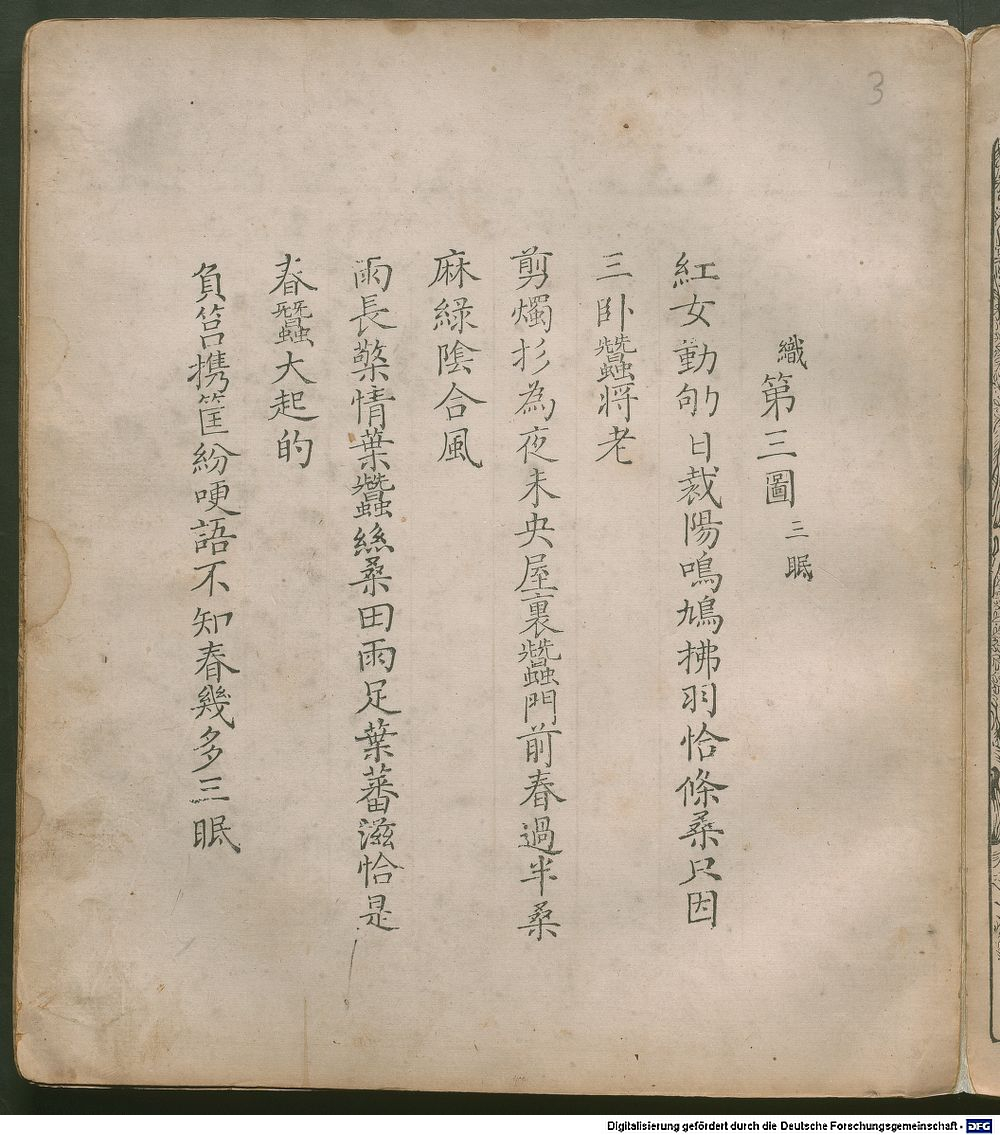 3
織第三圖 三眠
紅女勤劬日載陽鳴鳩拂羽恰條桑只因
三卧蠶將老
剪燭杉為夜未央屋裏蠶門前春過半桑
麻綠陰合風
雨長檠情葉蠶絲桑田雨足葉蕃滋恰是
春蠶大起的
負筥携筐紛哽語不知春幾多三眠
Digitalisierung gefördert durch die Deutsche Forschungsgemeinschaft - DFG